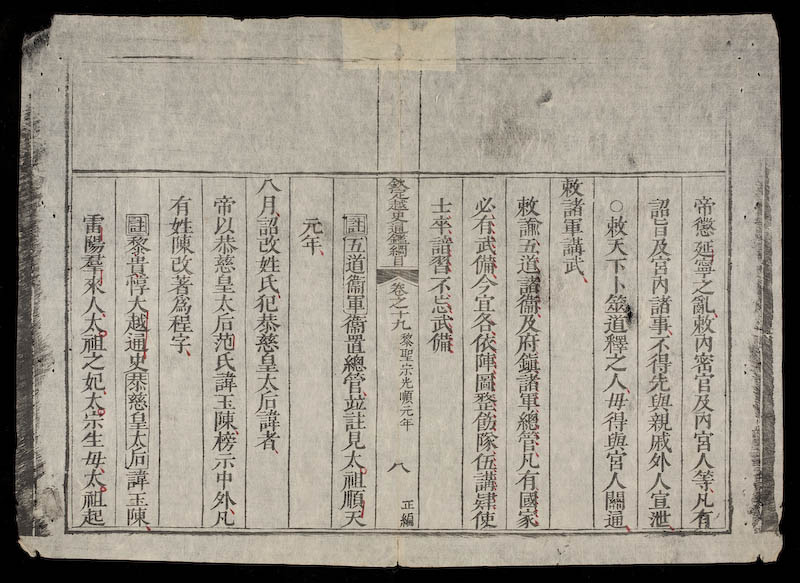 帝懲延寧之亂敕內密官及內宮人等凡有
詔旨及宮內諸事不得先與親戚外人宣泄
○敕天下卜筮道釋之人毋得與宮人關通
敕諸軍講武
敕諭五道諸衞及府鎮諸軍總管凡有國家
必有武備今宜各依陣圖整飭隊伍講肄使
士卒諳習不忘武備
欽定越史通鑑綱目 卷之十九 黎聖宗光順元年 八 正編
註五道衞軍衞置總管並註見太祖順天
元年
八月詔改姓氏犯恭慈皇太后諱者
帝以恭慈皇太后范氏諱玉陳榜示中外凡
有姓陳改著爲程字
註黎貴惇大越通史恭慈皇太后諱玉陳
雷陽羣來人太祖之妃太宗生母太祖起